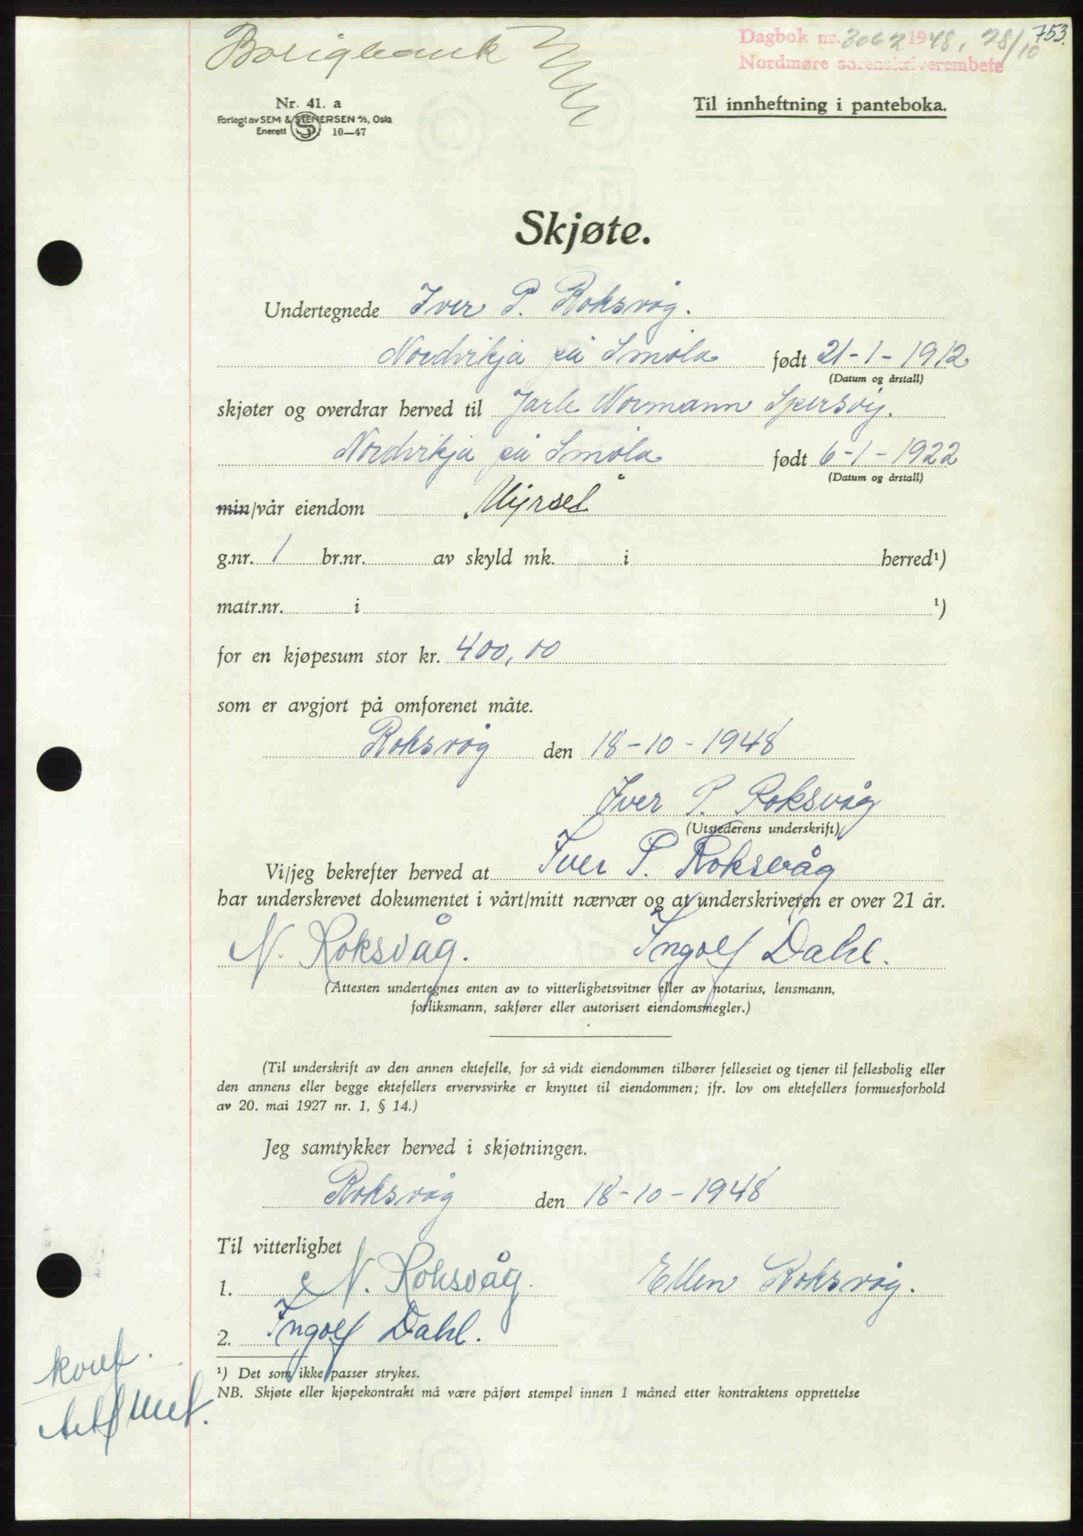 753
Dagbok nr. 3062 1948, 28/10
Nordmøre sorenskriverembete
Boligbank
Nr. 41. a
Forlagt av SEM & STENERSEN A/S, Oslo
Enerett S 10—47
Til innheftning i panteboka.
Skjøte.
Undertegnede Iver P. Roksvåg.
Nordvikja på Smøla født 21-1-1912
(Datum og årstall)
skjøter og overdrar herved til Jarle Normann Spersvig.
Nordvikja på Smøla født 6-1-1922
(Datum og årstall)
min/vår eiendom „Myrsel“
g.nr. 1 br.nr. av skyld mk. i herred¹)
matr.nr. i ¹)
for en kjøpesum stor kr. 400,00
som er avgjort på omforenet måte.
Roksvåg den 18-10-1948
Iver P. Roksvåg
(Utstederens underskrift)
Vi/jeg bekrefter herved at Iver P. Roksvåg
har underskrevet dokumentet i vårt/mitt nærvær og at underskriveren er over 21 år.
N. Roksvåg. Ingolf Dahl.
(Attesten undertegnes enten av to vitterlighetsvitner eller av notarius, lensmann,
forliksmann, sakfører eller autorisert eiendomsmegler.)
(Til underskrift av den annen ektefelle, for så vidt eiendommen tilhører felleseiet og tjener til fellesbolig eller
den annens eller begge ektefellers ervervsvirke er knyttet til eiendommen; jfr. lov om ektefellers formuesforhold
av 20. mai 1927 nr. 1, § 14.)
Jeg samtykker herved i skjøtningen.
Roksvåg den 18-10-1948
Til vitterlighet
1. N. Roksvåg. Ellen Roksvåg.
2. Ingolf Dahl.
¹) Det som ikke passer strykes.
NB. Skjøte eller kjøpekontrakt må være påført stempel innen 1 måned etter kontraktens opprettelse
konf.